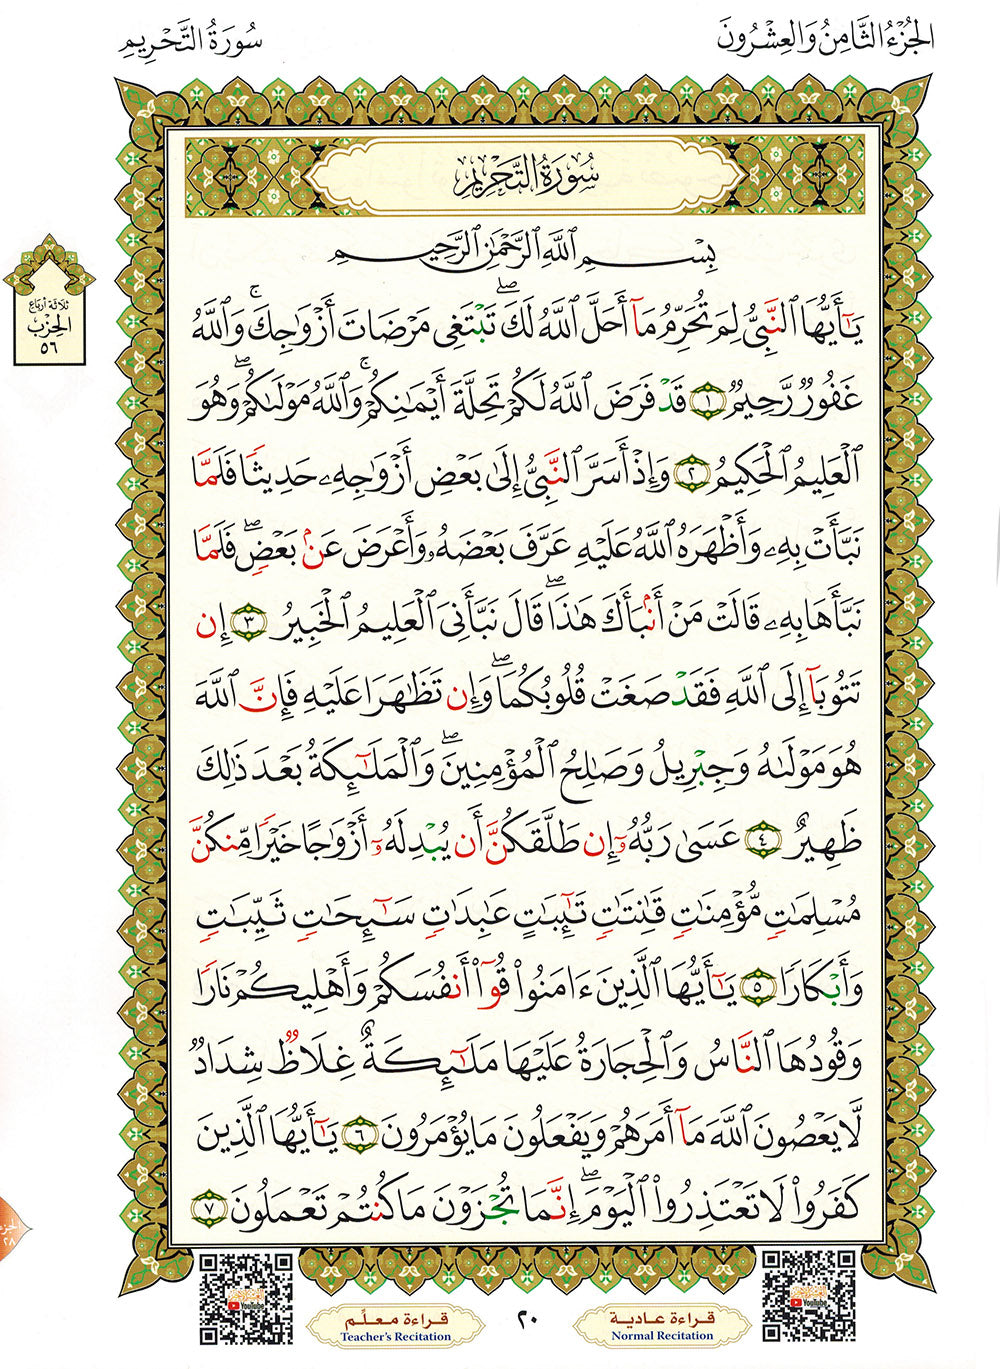 الجُزْءُ الثَّامِنُ وَالعِشْرُونَ
سُورَةُ التَّحْرِيمِ
سُورَةُ التَّحْرِيمِ
ثلاثة أرباع
الحِزْب
٥٦
بِسْمِ ٱللَّهِ ٱلرَّحْمَٰنِ ٱلرَّحِيمِ
يَٰٓأَيُّهَا ٱلنَّبِىُّ لِمَ تُحَرِّمُ مَآ أَحَلَّ ٱللَّهُ لَكَ ۖ تَبْتَغِى مَرْضَاتَ أَزْوَٰجِكَ ۚ وَٱللَّهُ
غَفُورٌ رَّحِيمٌ ١ قَدْ فَرَضَ ٱللَّهُ لَكُمْ تَحِلَّةَ أَيْمَٰنِكُمْ ۚ وَٱللَّهُ مَوْلَىٰكُمْ ۖ وَهُوَ
ٱلْعَلِيمُ ٱلْحَكِيمُ ٢ وَإِذْ أَسَرَّ ٱلنَّبِىُّ إِلَىٰ بَعْضِ أَزْوَٰجِهِۦ حَدِيثًا فَلَمَّا
نَبَّأَتْ بِهِۦ وَأَظْهَرَهُ ٱللَّهُ عَلَيْهِ عَرَّفَ بَعْضَهُۥ وَأَعْرَضَ عَنۢ بَعْضٍ ۖ فَلَمَّا
نَبَّأَهَا بِهِۦ قَالَتْ مَنْ أَنۢبَأَكَ هَٰذَا ۖ قَالَ نَبَّأَنِىَ ٱلْعَلِيمُ ٱلْخَبِيرُ ٣ إِن
تَتُوبَآ إِلَى ٱللَّهِ فَقَدْ صَغَتْ قُلُوبُكُمَا ۖ وَإِن تَظَٰهَرَا عَلَيْهِ فَإِنَّ ٱللَّهَ
هُوَ مَوْلَىٰهُ وَجِبْرِيلُ وَصَٰلِحُ ٱلْمُؤْمِنِينَ ۖ وَٱلْمَلَٰٓئِكَةُ بَعْدَ ذَٰلِكَ
ظَهِيرٌ ٤ عَسَىٰ رَبُّهُۥٓ إِن طَلَّقَكُنَّ أَن يُبْدِلَهُۥٓ أَزْوَٰجًا خَيْرًا مِّنكُنَّ
مُسْلِمَٰتٍ مُّؤْمِنَٰتٍ قَٰنِتَٰتٍ تَٰٓئِبَٰتٍ عَٰبِدَٰتٍ سَٰٓئِحَٰتٍ ثَيِّبَٰتٍ
وَأَبْكَارًا ٥ يَٰٓأَيُّهَا ٱلَّذِينَ ءَامَنُوا۟ قُوٓا۟ أَنفُسَكُمْ وَأَهْلِيكُمْ نَارًا
وَقُودُهَا ٱلنَّاسُ وَٱلْحِجَارَةُ عَلَيْهَا مَلَٰٓئِكَةٌ غِلَاظٌ شِدَادٌ
لَّا يَعْصُونَ ٱللَّهَ مَآ أَمَرَهُمْ وَيَفْعَلُونَ مَا يُؤْمَرُونَ ٦ يَٰٓأَيُّهَا ٱلَّذِينَ
كَفَرُوا۟ لَا تَعْتَذِرُوا۟ ٱلْيَوْمَ ۖ إِنَّمَا تُجْزَوْنَ مَا كُنتُمْ تَعْمَلُونَ ٧
الجزء
٢٨
YouTube
قراءة عادية
Normal Recitation
٢٠
قراءة معلّم
Teacher's Recitation
YouTube